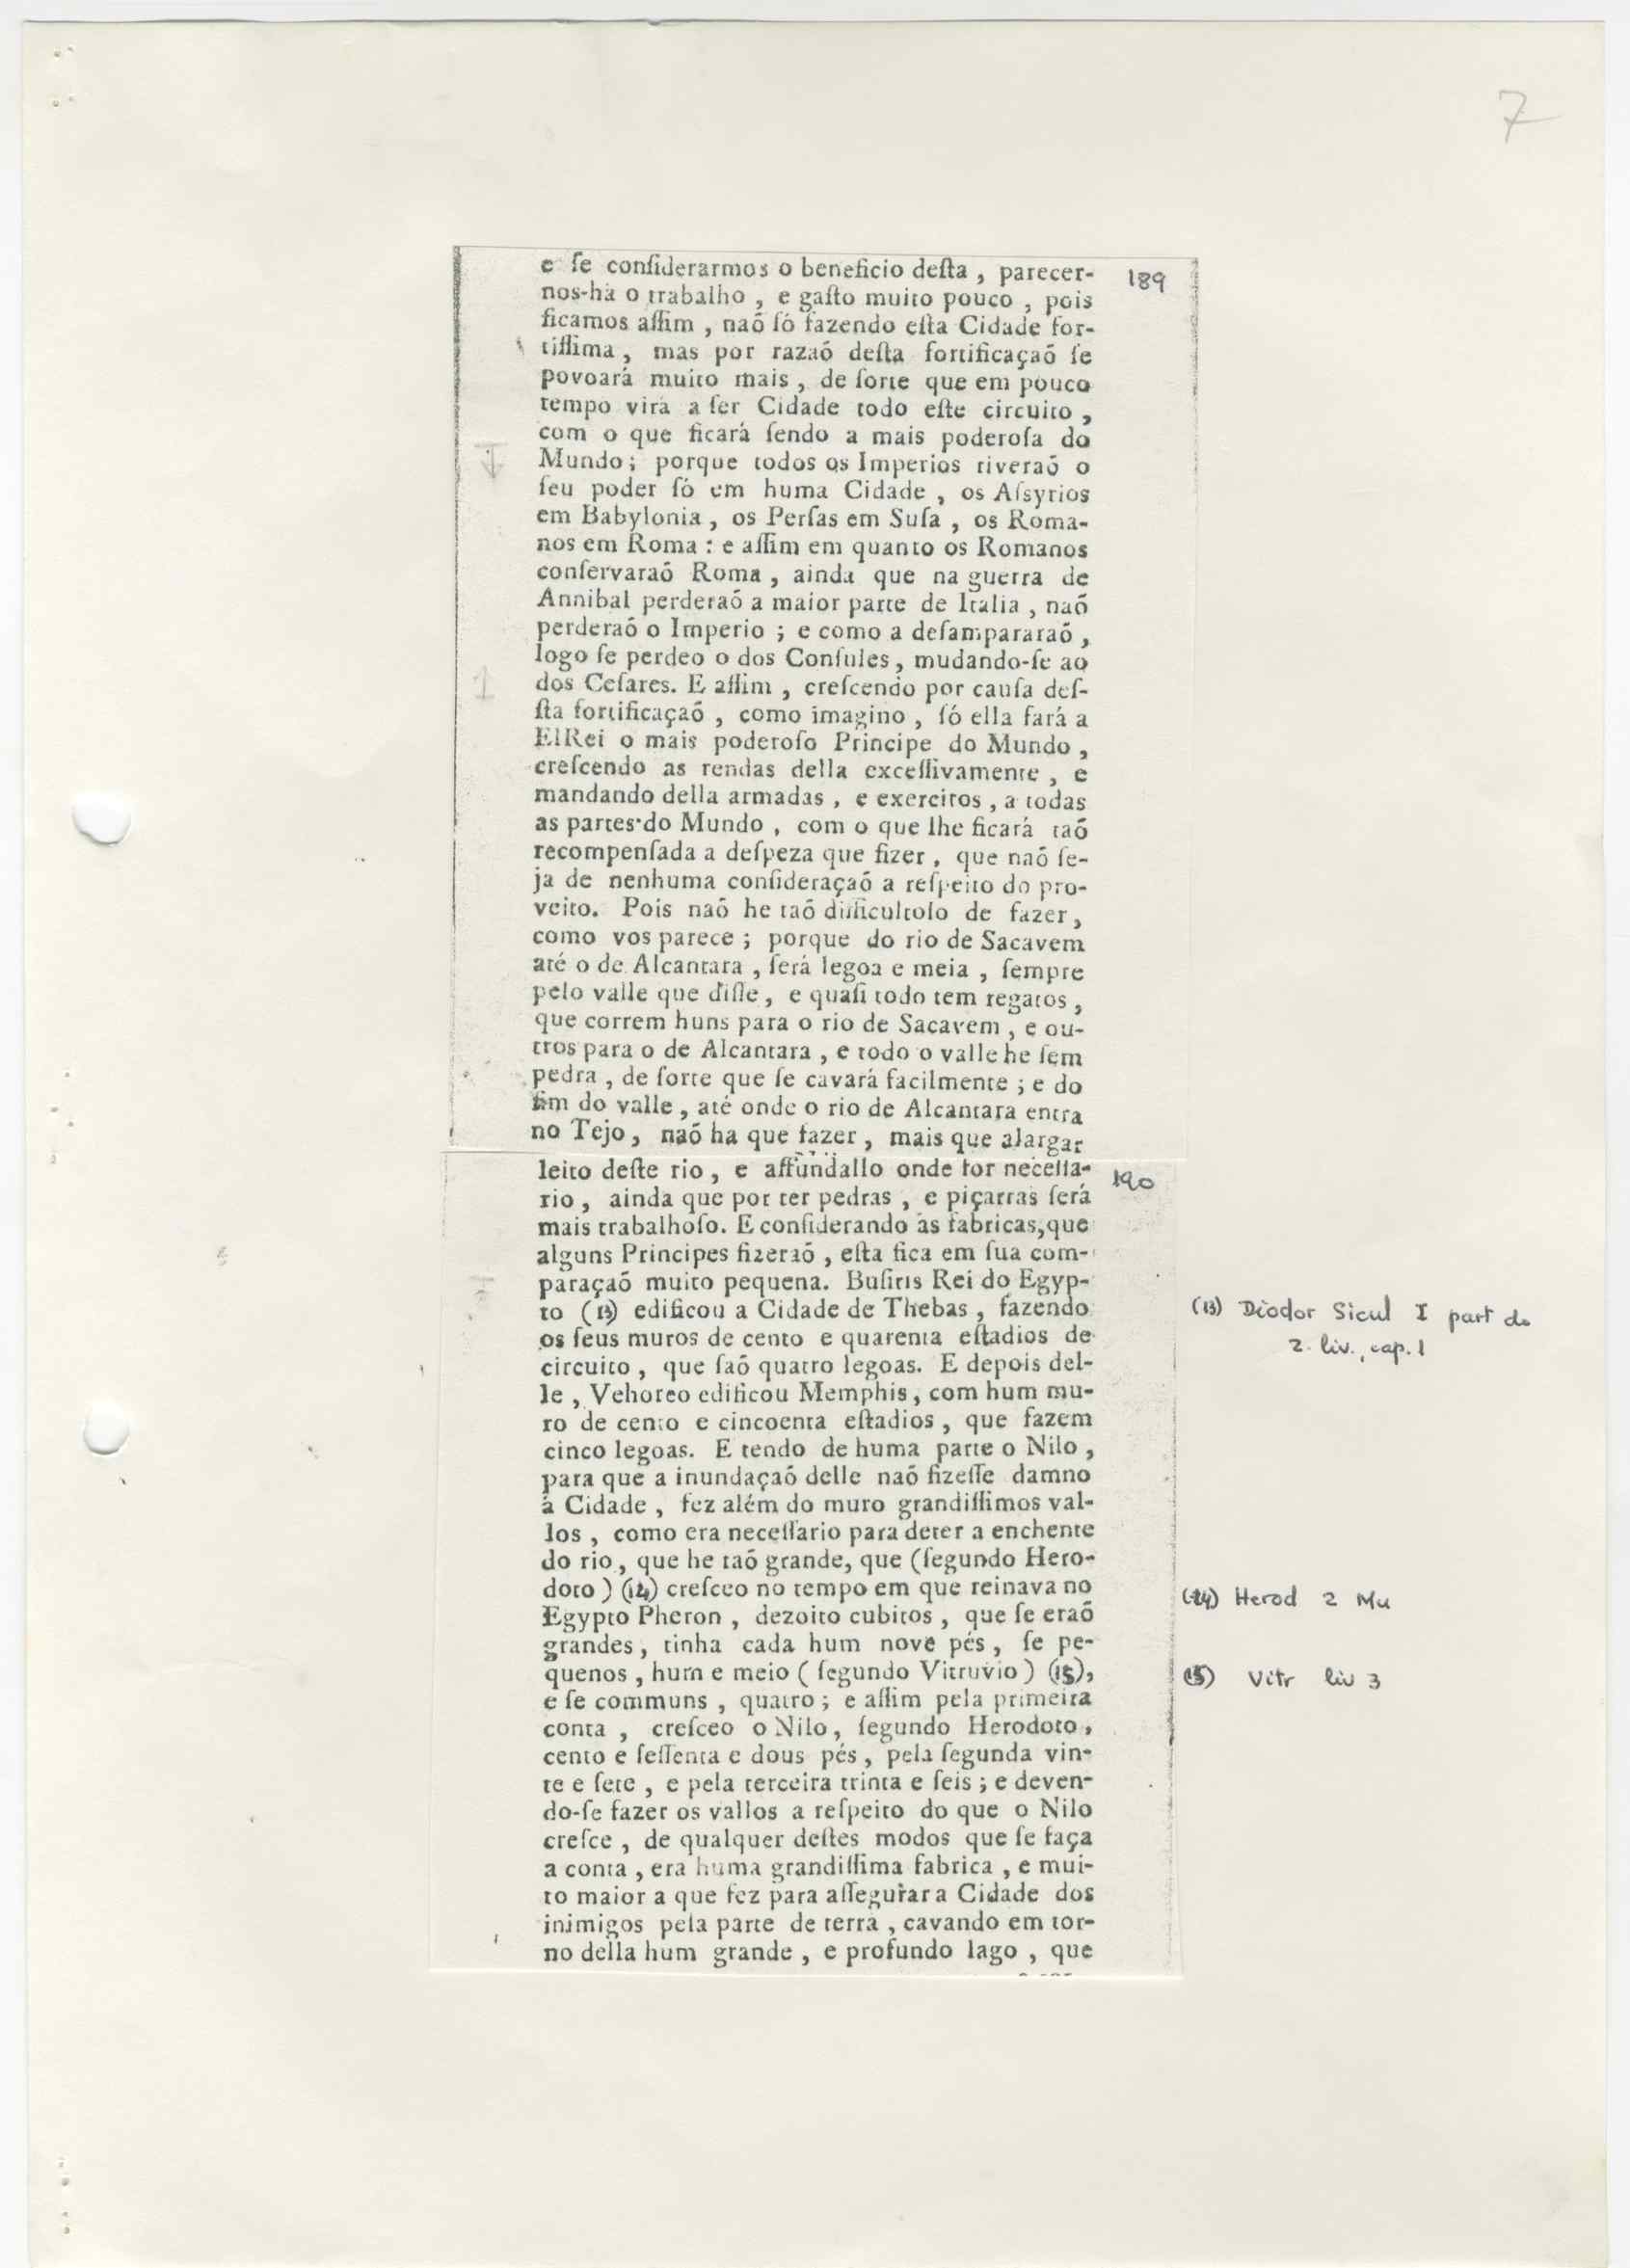 7
e ſe conſiderarmos o beneficio deſta , parecer-
189
nos-há o trabalho , e gaſto muito pouco , pois
ficamos aſſim , naõ ſó fazendo eſta Cidade for-
tiſſima , mas por razaõ deſta fortificaçaõ ſe
povoará muito mais , de ſorte que em pouco
tempo virá a ſer Cidade todo eſte circuito ,
com o que ficará ſendo a mais poderoſa do
Mundo ; porque todos os Imperios tiveraõ o
ſeu poder ſó em huma Cidade , os Aſsyrios
em Babylonia , os Perſas em Suſa , os Roma-
nos em Roma : e aſſim em quanto os Romanos
conſervaraõ Roma , ainda que na guerra de
Annibal perderaõ a maior parte de Italia , naõ
perderaõ o Imperio ; e como a deſampararaõ ,
logo ſe perdeo o dos Conſules , mudando-ſe ao
dos Ceſares. E aſſim , creſcendo por cauſa deſ-
ſta fortificaçaõ , como imagino , ſó ella fará a
ElRei o mais poderoſo Principe do Mundo ,
creſcendo as rendas della exceſſivamente , e
mandando della armadas , e exercitos , a todas
as partes do Mundo , com o que lhe ficará taõ
recompenſada a deſpeza que fizer , que naõ ſe-
ja de nenhuma conſideraçaõ a reſpeito do pro-
veito. Pois naõ he taõ difficultoſo de fazer ,
como vos parece ; porque do rio de Sacavem
até o de Alcantara , ſerá legoa e meia , ſempre
pelo valle que diſſe , e quaſi todo tem regatos ,
que correm huns para o rio de Sacavem , e ou-
tros para o de Alcantara , e todo o valle he ſem
pedra , de ſorte que ſe cavará facilmente ; e do
fim do valle , até onde o rio de Alcantara entra
no Tejo , naõ ha que fazer , mais que alargar
leito deſte rio , e affundallo onde for neceſſa-
190
rio , ainda que por ter pedras , e piçarras ſerá
mais trabalhoſo. E conſiderando as fabricas, que
alguns Principes fizeraõ , eſta fica em ſua com-
paraçaõ muito pequena. Buſiris Rei do Egyp-
to (13) edificou a Cidade de Thebas , fazendo
(13) Diodor Sicul I part do
os ſeus muros de cento e quarenta eſtadios de
2. liv., cap. 1
circuito , que ſaõ quatro legoas. E depois del-
le , Vehoreo edificou Memphis , com hum mu-
ro de cento e cincoenta eſtadios , que fazem
cinco legoas. E tendo de huma parte o Nilo ,
para que a inundaçaõ delle naõ fizeſſe damno
á Cidade , fez além do muro grandiſſimos val-
los , como era neceſſario para deter a enchente
do rio , que he taõ grande, que (ſegundo Hero-
doto ) (14) creſceo no tempo em que reinava no
(14) Herod 2 Mu
Egypto Pheron , dezoito cubitos , que ſe eraõ
grandes , tinha cada hum nove pés , ſe pe-
quenos , hum e meio ( ſegundo Vitruvio ) (15),
(15) Vitr liv 3
e ſe communs , quatro ; e aſſim pela primeira
conta , creſceo o Nilo , ſegundo Herodoto ,
cento e ſeſſenta e dous pés , pela ſegunda vin-
te e ſete , e pela terceira trinta e ſeis ; e deven-
do-ſe fazer os vallos a reſpeito do que o Nilo
creſce , de qualquer deſtes modos que ſe faça
a conta , era huma grandiſſima fabrica , e mui-
to maior a que fez para aſſegurar a Cidade dos
inimigos pela parte de terra , cavando em tor-
no della hum grande , e profundo lago , que